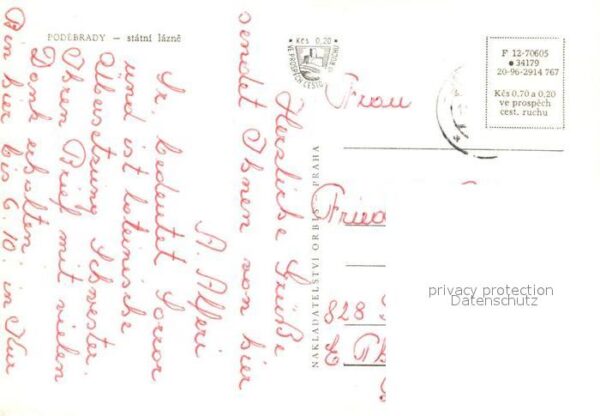 PODĚBRADY — státní lázně
Herzliche Grüße
sendet Ihnen von hier
A. Alferi
Sr. bedeutet Sorror
und ist lateinische
Übersetzung Schwester.
Ihren Brief mit vielen
Dank erhalten
Bin hier bis 6.10. in Kur
Kčs 0,20
VE PROSPĚCH CESTOVNÍHO RUCHU
NAKLADATELSTVÍ ORBIS — PRAHA
F 12-70605
34179
20-96-2914 767
Kčs 0.70 a 0,20
ve prospěch
cest. ruchu
Frau
828
privacy protection
Datenschutz